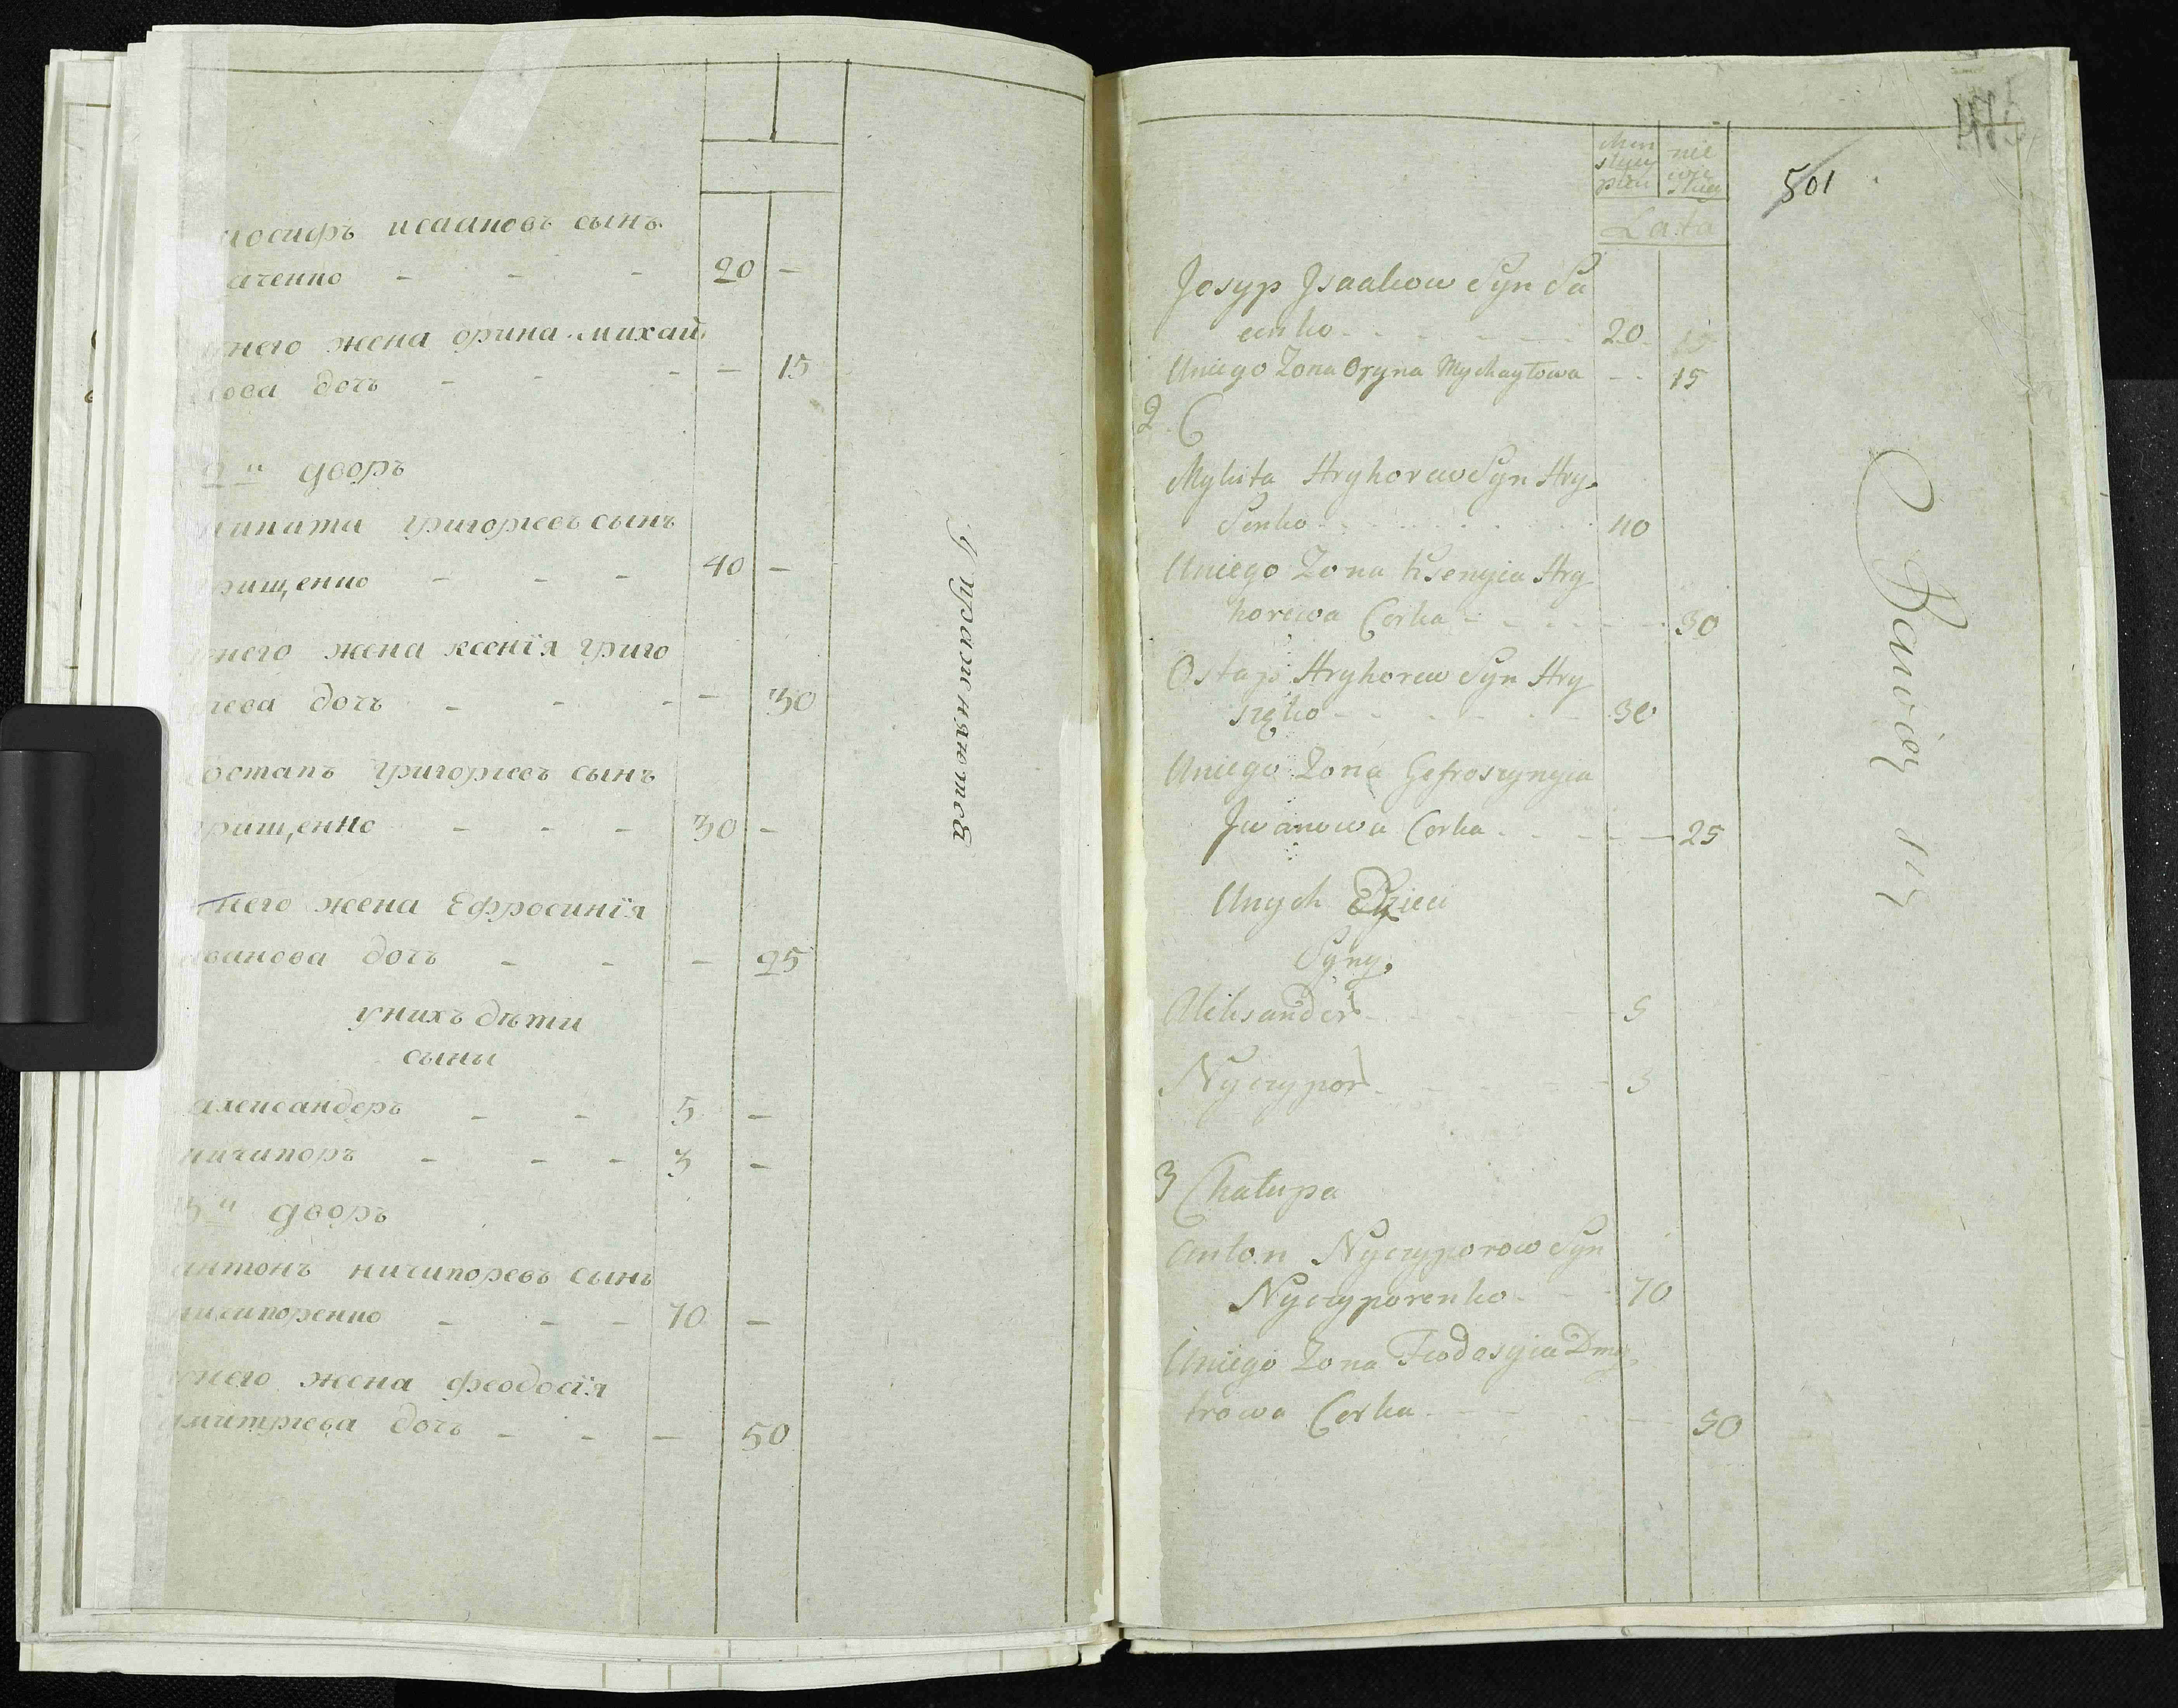 иосифъ исааковъ сынъ
аченко - - - 20 -
него жена орина михай
лова дочь - - - - 15
2 й дворъ
никита григорьевъ сынъ
грищенко - - - 40 -
унего жена ксенїя григо
рьева дочь - - - - 30
остапъ григорьевъ сынъ
грищенко - - - 30 -
унего жена Ефросинїя
иванова дочь - - - 25
унихъ дѣти
сыны
александеръ - - 5 -
ничипоръ - - - 3 -
3 й дворъ
антонъ ничипоревъ сынъ
ничипоренко - - - 70 -
унего жена феодосїя
дмитрієва дочь - - - 50
501
Lata
Josyp Jsaakow Syn Sa
cenko - - - 20 15
Uniego Zona Oryna Mychayłowa - - 15
2 C
Mykita Hryhorew Syn Hry
Senko - - - 40
Uniego Zona Ksenyia Hry
horewa Corka - - - 30
Ostap Hryhorew Syn Hry
szęko - - - 30
Uniego Zona Gefroszynyia
Jwanowa Corka - - - 25
Unych Dzieci
Syny
Aleksander - - - 5
Nyczypor - - - 3
3 Chałupa
Anton Nyczyporow Syn
Nyczyporenko - - 70
Uniego Zona Feodosyia Dmy
trowa Corka - - - 50